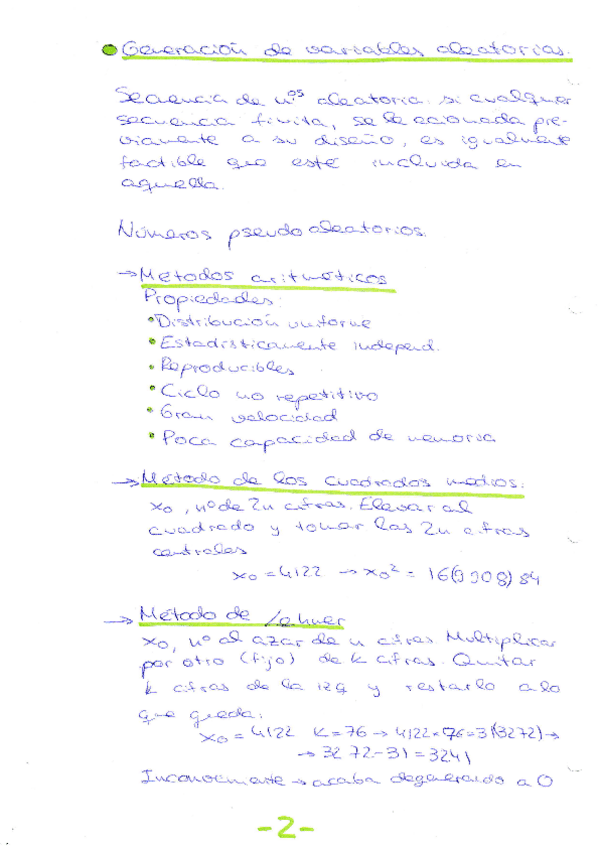 Generación de variables aleatorias.
Secuencia de nos aleatoria: si cualquier
secuencia finita, seleccionada pre-
viamente a su diseño, es igualmente
factible que esté incluida en
aquella.
Números pseudoaleatorios.
→ Métodos aritméticos
Propiedades:
• Distribución uniforme
• Estadísticamente independ.
• Reproducibles
• Ciclo no repetitivo
• Gran velocidad
• Poca capacidad de memoria
→ Método de los cuadrados medios:
x0, nº de 2n cifras. Elevar al
cuadrado y tomar las 2n cifras
centrales
x0 = 4122 → x0² = 16(9908)84
→ Método de Lehmer
x0, nº al azar de n cifras. Multiplicar
por otro (fijo) de k cifras. Quitar
k cifras de la izq y restarlo a lo
que queda:
x0 = 4122 K = 76 → 4122 × 76 = 31(3272) →
→ 3272 - 31 = 3241
Inconveniente → acaba degenerando a 0
-2-